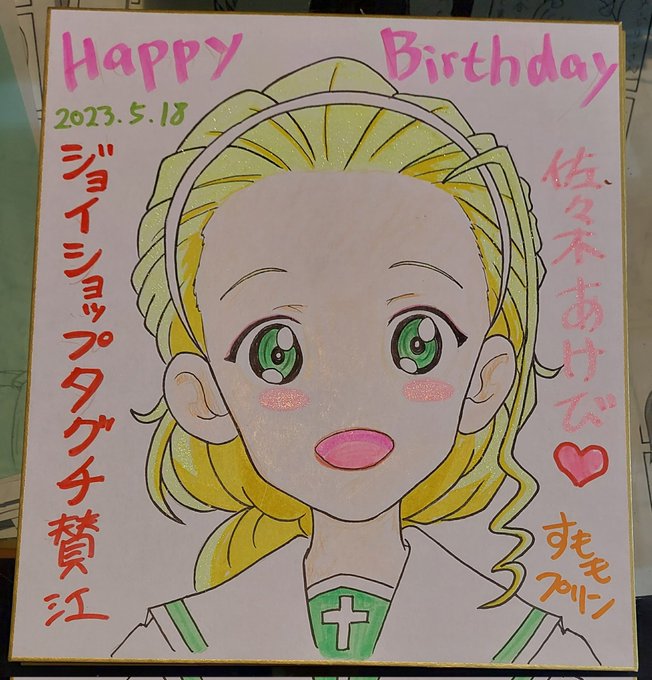 Happy Birthday
2023.5.18
佐々木あけび♡
ジョイショップタグチ賛江
すもも
プリン